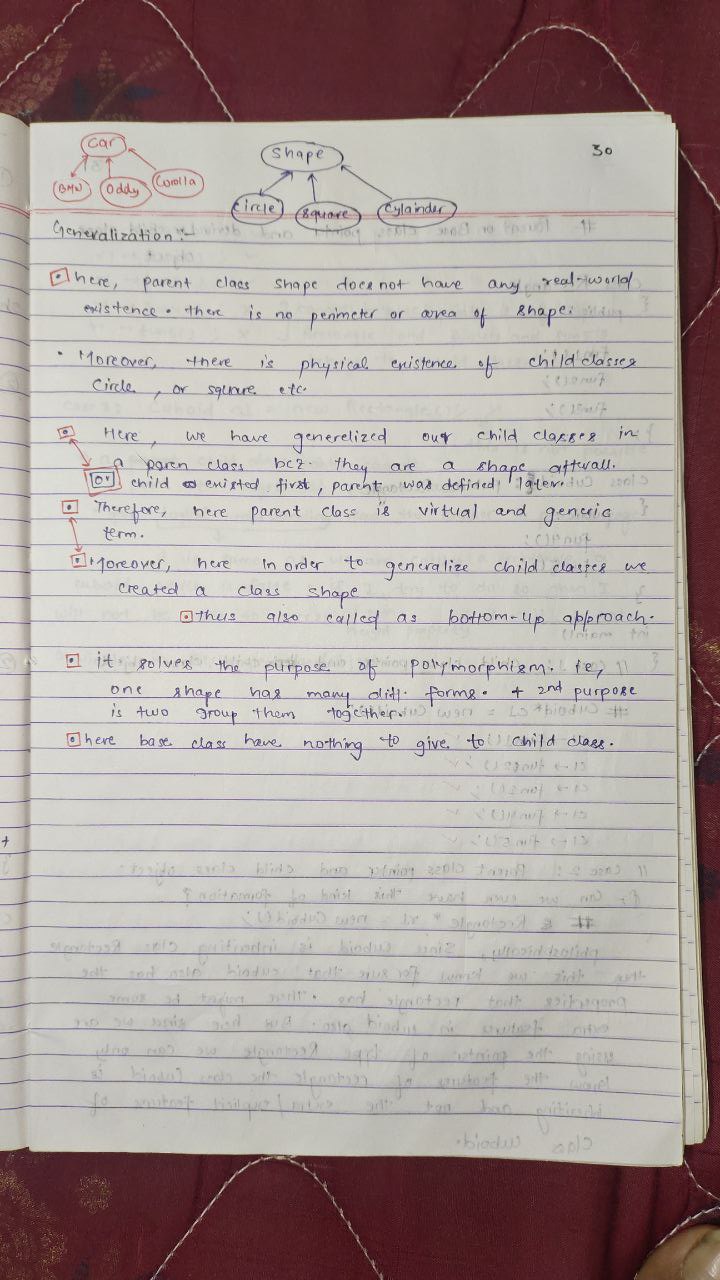 30
Car
BMW Oddy Corolla
Shape
Circle Square Cylainder
Generalization :-
here, parent class shape does not have any real-world
existence. there is no perimeter or area of shape.
• Moreover, there is physical existence of child classes
Circle, or square etc.
Here, we have generelized our child classes in
a paren class bcz. they are a shape afterall.
or child existed first, parent was defined later.
Therefore, here parent class is virtual and generic
term.
Moreover, here in order to generalize child classes we
created a class shape
thus also called as bottom-up approach.
it solves the purpose of polymorphism. ie,
one shape has many diff. forms. + 2nd purpose
is two group them together.
here base class have nothing to give to child class.